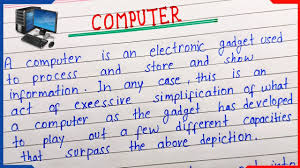 COMPUTER
A computer is an electronic gadget used
to process and store and show
information. In any case, this is an
act of exeessive simplification of what
a computer as the gadget has developed
to play out a few different capacities
that surpass the above depiction.